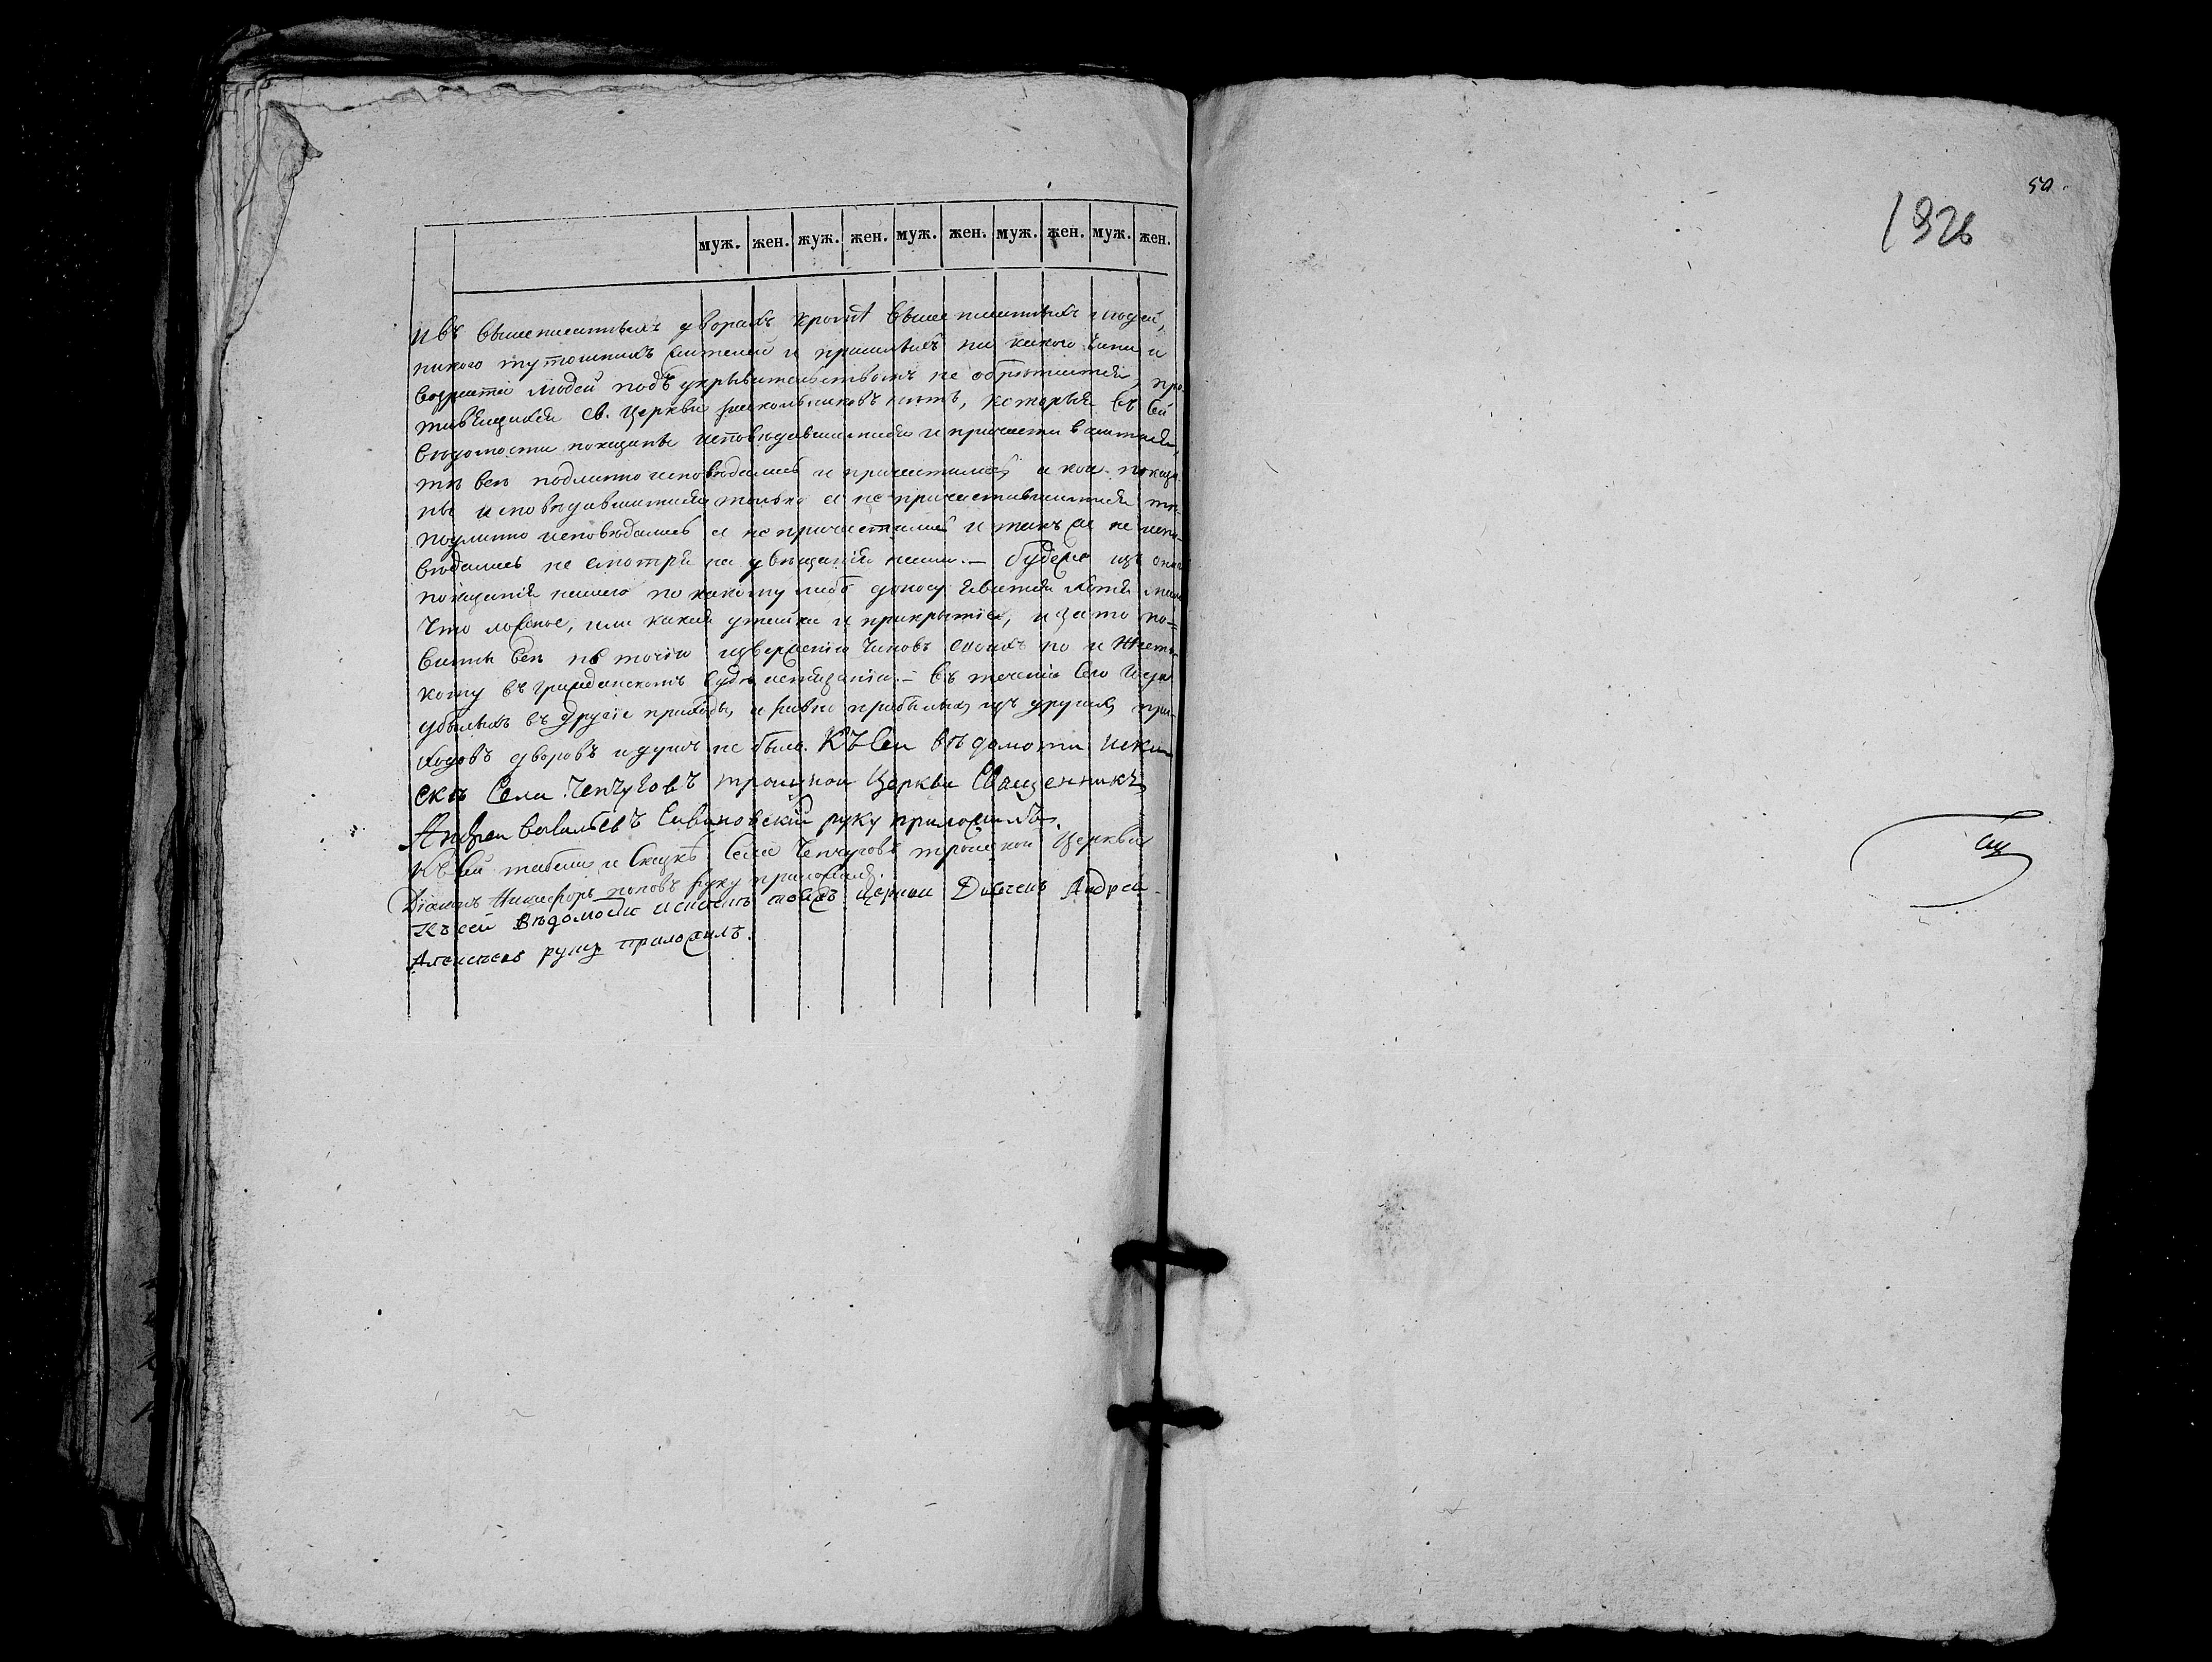 муж. жен. муж. жен. муж. жен. муж. жен. муж. жен.
И въ вышеписанныхъ дворахъ кромѣ вышеписанныхъ людей,
никого тутошнихъ жителей и пришлыхъ ни какого чина и
возраста людей подъ укрывательствомъ не обрѣтается, про-
тивящихся св. Церкви раскольниковъ нѣтъ, которыя въ сей
вѣдомости показаны исповѣдавшимися и причастившимися,
тѣ всѣ подлинно исповѣдались и причастились, а кои показа-
ны исповѣдавшимися только а не причастившимися тѣ
подлинно исповѣдались а не причастились и также не испо-
вѣдались не смотря на увѣщанія наши. – будеже изъ онаго
показанія нашего по какому либо доносу явится хотя мало
что ложное, или какая утайка и прикрытіе, и за то по-
винны всѣ не точію изверженію чиновъ своихъ но и жесто-
кому въ гражданскомъ судѣ истязанію. – въ теченіи сего года
убылыхъ въ другіе приходы, а равно прибылыхъ изъ другихъ при-
ходовъ дворовъ и душъ не было. Къ Сей вѣдомости и ска-
скѣ Села Чепчуговъ троицкой Церкви Священникъ
Андреи Васильевъ руку приложилъ.
Къ сей и Сказкѣ Села Чепчуговъ троицкой Церкви
Діаконъ Никифоръ поповъ руку приложилъ.
Къ сей Вѣдомости Церкви Дьячекъ Андрей
Алексѣевъ руку приложилъ.
50.
1826